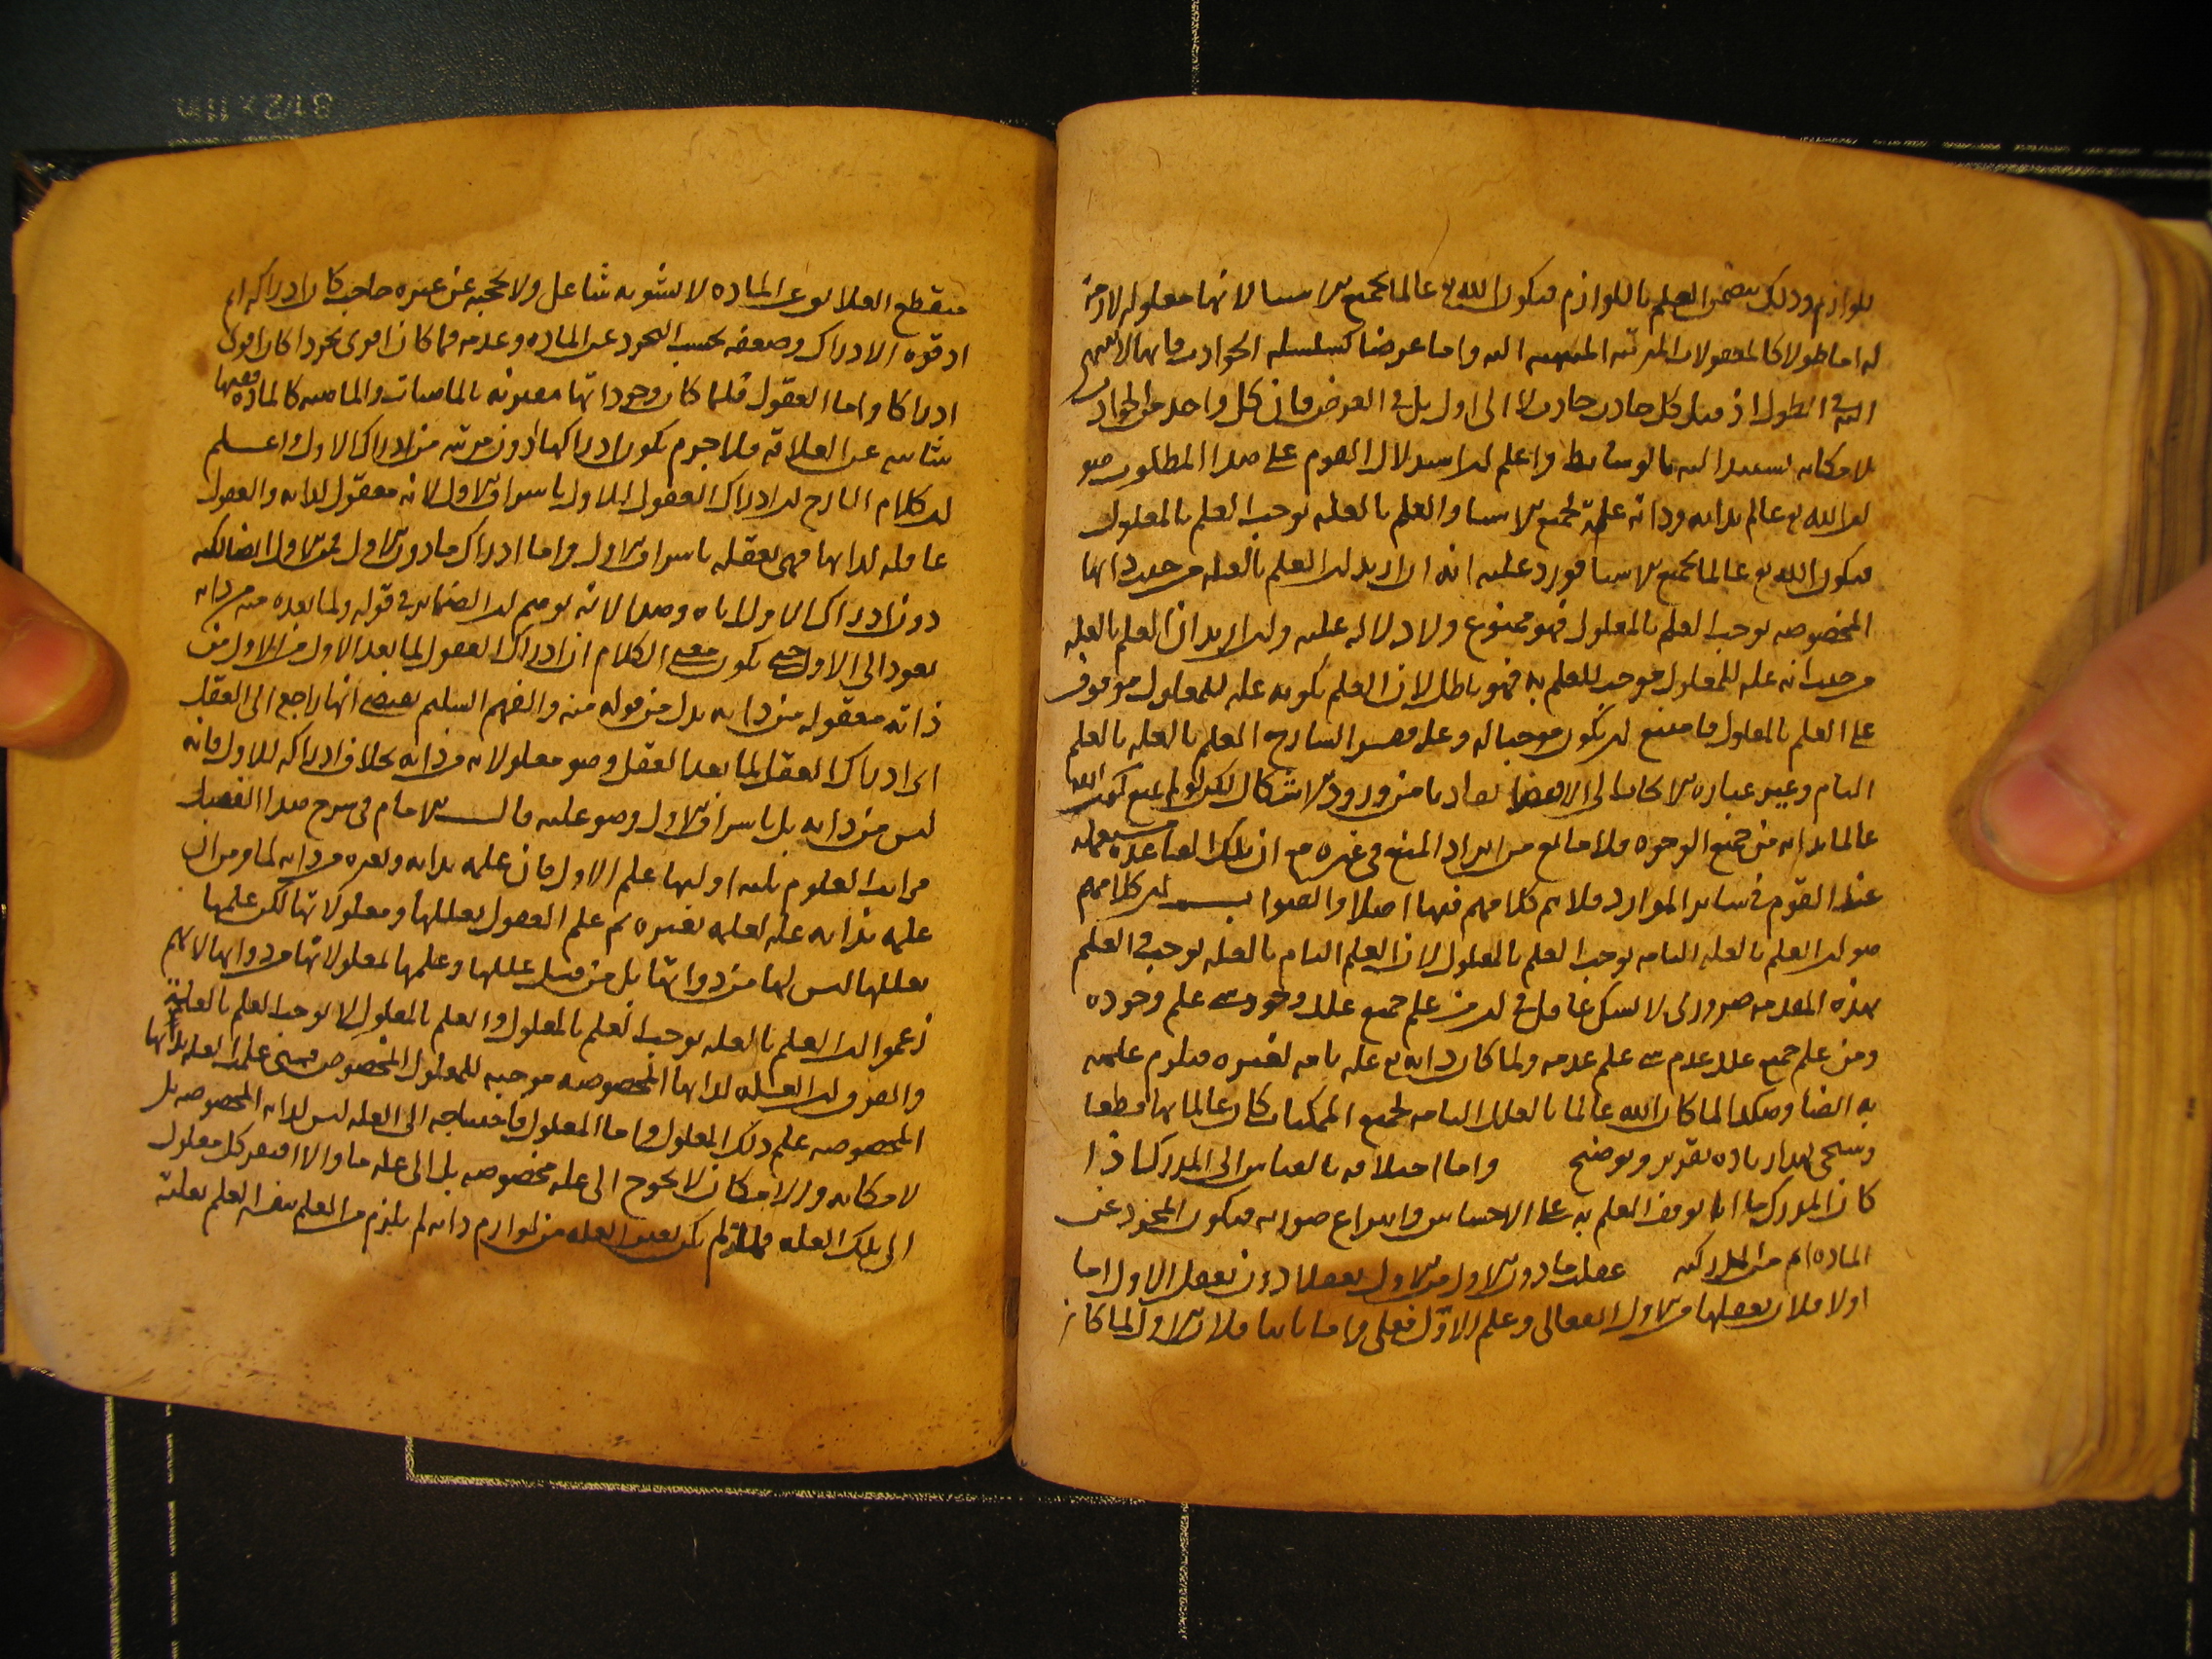 للوازم وذلك يتضمن العلم باللوازم فيكون الله تع عالما بجميع الاشيا لانها معلوله لازمة
له اما طولا كالمعلولات المترتبه المنتهيه اليه واما عرضا كسلسله الحوادث فانها لا تنتهى
اليه فى الطول اذ قبل كل حادث حادث لا الى اول بل فى العرض فان كل واحد من الحوادث
لامكانه يستند اليه بالوسائط واعلم ان استدلال القوم على هذا المطلوب هو
ان الله تع عالم بذاته وذاته علة لجميع الاشيا والعلم بالعله يوجب العلم بالمعلول
فيكون الله تع عالما بجميع الاشيا فورد عليه انه ان اريد ان العلم بالعله من حيث ذاتها
المخصوصه يوجب العلم بالمعلول فهو ممنوع ولا دلاله عليه وان اريد ان العلم بالعله
من حيث انه عله للمعلول موجب للعلم به فهو باطل لان العلم بكونه عله للمعلول موقوف
على العلم بالمعلول فامتنع ان يكون موجبا له وعلى فسر الشارح العلم بالعله بالعلم
التام وغير عباره الكتاب الى الاقتضا تفاديا من ورود الاشكال لكن لو لم يمنع كون الله
عالما بذاته من جميع الوجوه فلا مانع من ايراد المنع فى غيره مع ان تلك القاعده مستعمله
عند القوم فى ساير الموارد فلا يتم كلامهم فيها اصلا والصواب ان كلامهم
هو ان العلم بالعله التامه يوجب العلم بالمعلول لان العلم التام بالعله يوجب العلم
بهذه المقدمه ضرورى لا يشك عاقل فى ان من علم جميع علل وجود شى علم وجوده
ومن علم جميع علل عدم شى علم عدمه ولما كان ذاته تع عله تامه لغيره فيلزم علمه
به ايضا وهكذا لما كان الله عالما بالعلل التامه لجميع الممكنات كان عالما بها قطعا
وسيجى لهذا زياده تقرير وتوضيح واما اختلافه بالقياس الى المدرك فاذا
كان المدرك ماديا توقف العلم به على الاحساس وانتزاع صورته فيكون المجرد عن
الماده اتم من المدركيه عقلت ما دون الاول من الاول تعقلا دون تعقل الاول اما
اولا فلان تعقلها من الاول انفعالى وعلم الاول فعلى واما ثانيا فلان الاول لما كان
منقطع العلايق عن الماده لا يشوبه شاغل ولا يحجبه عن غيره حاجب كان ادراكه اتم
اذ قوه الادراك وضعفه بحسب التجرد عن الماده وعدمه فما كان اقوى تجردا كان اقوى
ادراكا واما العقول فلما كان وجوداتها مقترنه بالماهيات والماهيه كالماده ففيها
شائبه عن العلاقه فلا جرم يكون ادراكها دون مرتبه من ادراك الاول واعلم
ان كلام الشارح ان ادراك العقول للاول باشراق الاول لانه معقول لذاته والعقول
عاقله لذاتها فهى تعقله باشراق الاول واما ادراك ما دون الاول فمن الاول ايضا لكنه
دون ادراك الاول اياه وهذا لانه توهم ان الضماير فى قوله ولما بعده منه من ذاته
يعود الى الاول حتى يكون معنى الكلام ان ادراك العقول لما بعد الاول من الاول من
ذاته معقوله من ذاته بدل من قوله منه والفهم السليم يقتضى انها راجع الى العقل
اى ادراك العقل لما بعد العقل وهو معلولاته من ذاته بخلاف ادراكه للاول فانه
ليس من ذاته بل باشراق الاول وهو عليه قال الامام فى شرح هذا الفصل
مراتب العلوم ثلثه اوليها علم الاول فان علمه بذاته ولغيره من ذاته لما مر من ان
علمه بذاته عله لعلمه بغيره ثم علم العقول بعللها ومعلولاتها لكن علمها
بعللها ليس لها من ذواتها بل من قبل عللها وعلمها لمعلولاتها من ذواتها لانهم
زعموا ان العلم بالعله يوجب العلم بالمعلول والعلم بالمعلول لا يوجب العلم بالعلية
والفرق ان العله لذاتها المخصوصه موجبه للمعلول المخصوص فمتى علمت العله بذاتها
المخصوصه علم ذلك المعلول واما المعلول فاحتياجه الى العله ليس لذاته المخصوصه بل
لامكانه والامكان لا يحوج الى عله مخصوصه بل الى عله ما والا افتقر كل معلول
الى تلك العله فلما لم يكن تعين العله من لوازم ذاته لم يلزم من العلم بنفسه العلم بعلته